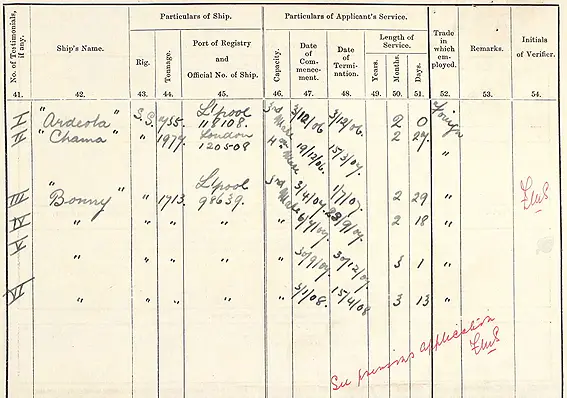 Particulars of Ship. Particulars of Applicant's Service.
No. of Testimonials, if any. Ship's Name. Rig. Tonnage. Port of Registry and Official No. of Ship. Capacity. Date of Commencement. Date of Termination. Length of Service. Years. Months. Days. Trade in which employed. Remarks. Initials of Verifier.
41. 42. 43. 44. 45. 46. 47. 48. 49. 50. 51. 52. 53. 54.
I "Ardeola" S.S. L'pool 118108. 3rd Mate 3/12/06. 2 0 Foreign
"Chama" " 1977 London 120508 4th Mate 19/12/06. 15/3/07. 2 27 "
III "Bonny" " 1713 L'pool 98639. 3rd Mate 3/4/07 1/7/07. 2 29
IV " " " " " 6/7/07. 23/9/07. 2 18 "
V " " " " " 30/9/07. 30/12/07. 3 1 "
VI " " " " " 3/1/08. 15/4/08 3 13 "
See previous application